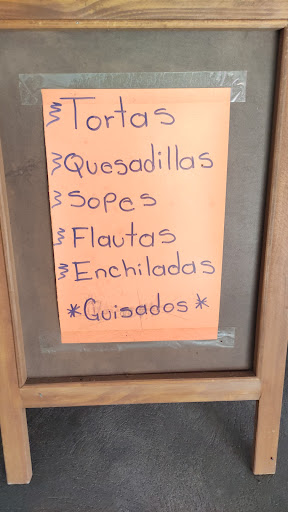 Tortas
Quesadillas
Sopes
Flautas
Enchiladas
*Guisados*